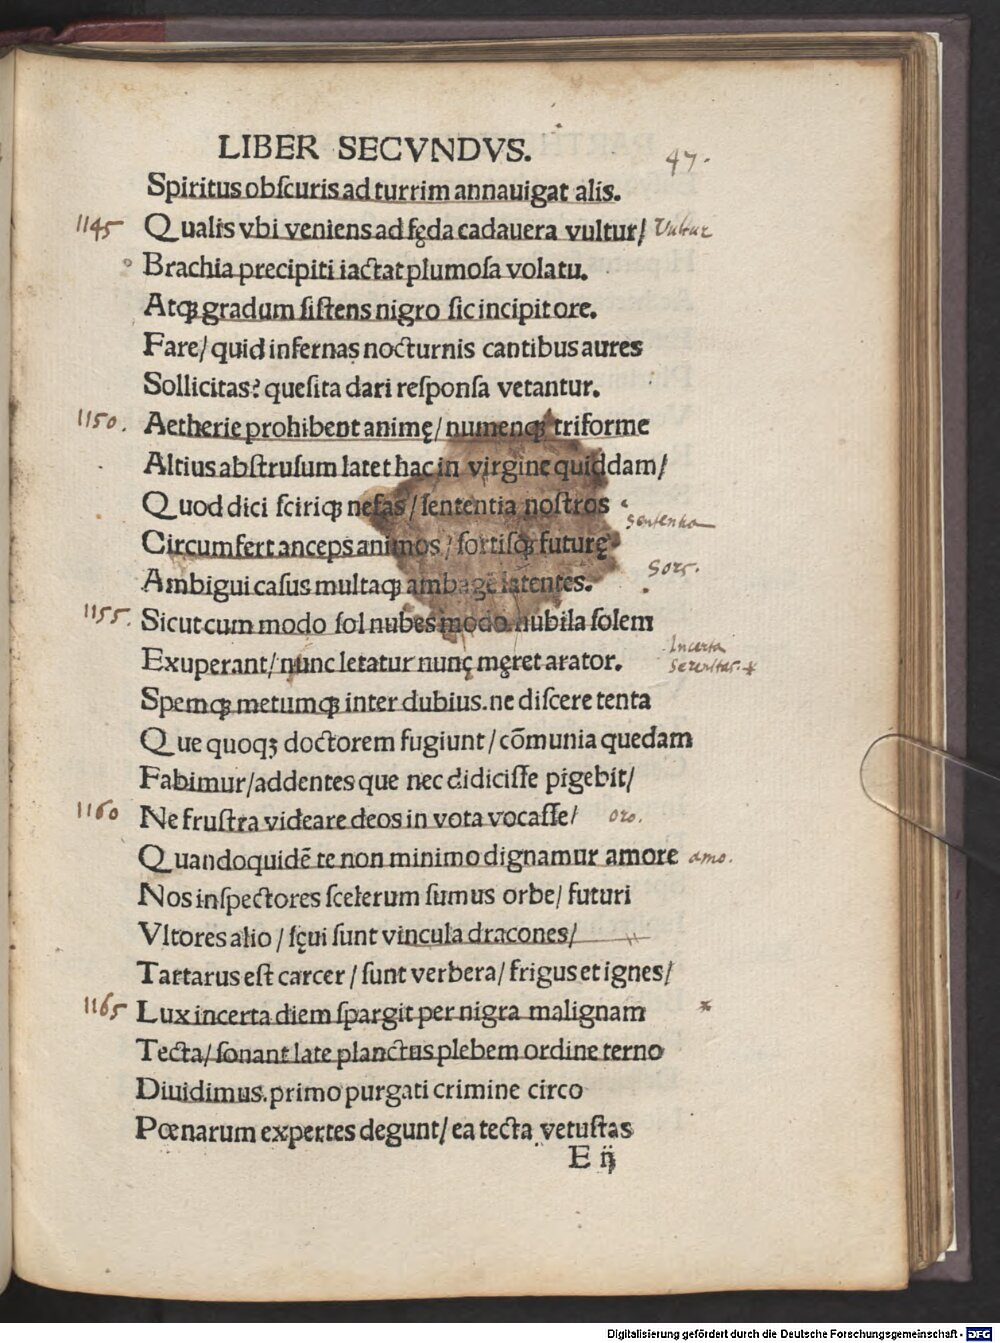 LIBER SECVNDVS.
47.
Spiritus obſcuris ad turrim annauigat alis.
1145 Qualis vbi veniens ad fęda cadauera vultur/ Vultur
Brachia precipiti iactat plumoſa volatu.
Atqꝫ gradum ſiſtens nigro ſic incipit ore.
Fare/ quid infernas nocturnis cantibus aures
Sollicitas? queſita dari reſponſa vetantur.
1150. Aetherie prohibent animę/ numenqꝫ triforme
Altius abſtruſum latet hac in virgine quiddam/
Quod dici ſciriqꝫ nefas/ ſententia noſtros
Sententia
Circumfert anceps animos/ ſortiſqꝫ futurę
Sors.
Ambigui caſus multaqꝫ ambage latentes.
1155. Sicut cum modo ſol nubes modo nubila ſolem
Incerta
Exuperant/ nunc letatur nunc męret arator.
Serenitas.
Spemqꝫ metumqꝫ inter dubius. ne diſcere tenta
Que quoqꝫ doctorem fugiunt/ cōmunia quedam
Fabimur/ addentes que nec didiciſſe pigebit/
1160 Ne fruſtra videare deos in vota vocaſſe/ oro.
Quandoquidē te non minimo dignamur amore amo.
Nos inſpectores ſcelerum ſumus orbe/ futuri
Vltores alio/ ſęui ſunt vincula dracones/
Tartarus eſt carcer/ ſunt verbera/ frigus et ignes/
1165 Lux incerta diem ſpargit per nigra malignam *
Tecta/ ſonant late planctus plebem ordine terno
Diuidimus. primo purgati crimine circo
Pœnarum expertes degunt/ ea tecta vetuſtas
E ij
Digitalisierung gefördert durch die Deutsche Forschungsgemeinschaft - DFG